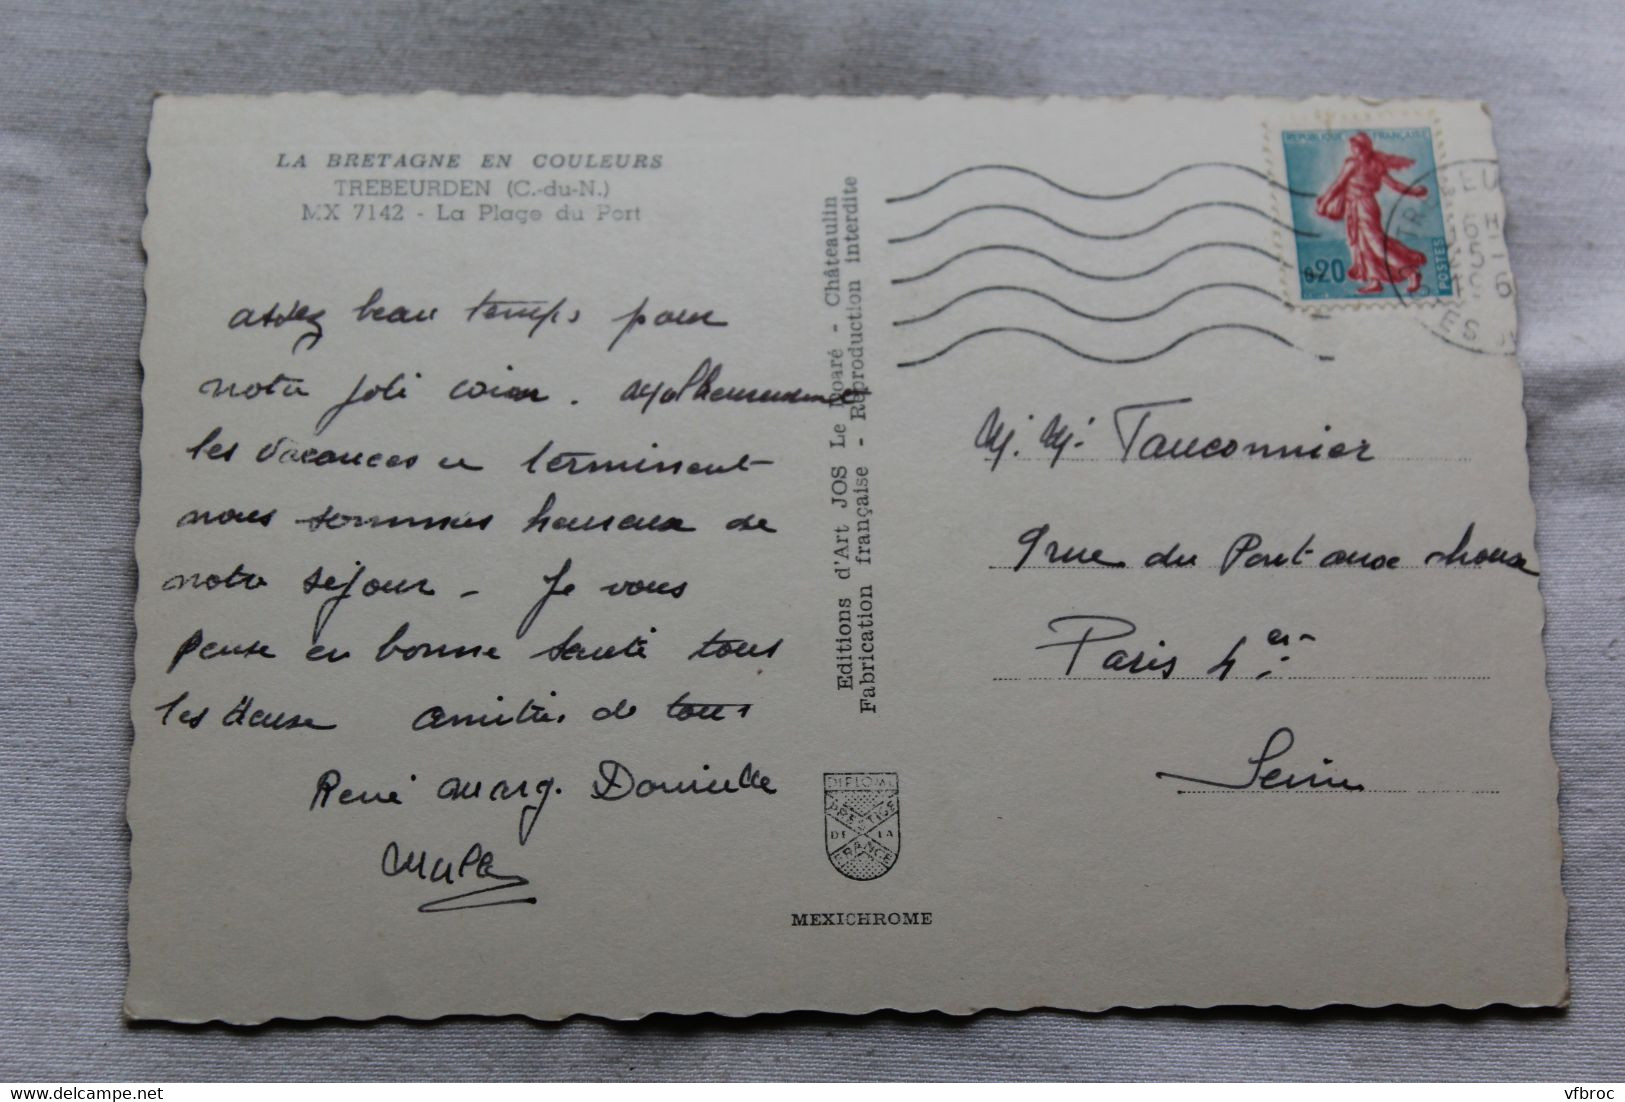 LA BRETAGNE EN COULEURS
TREBEURDEN (C.-du-N.)
MX 7142 - La Plage du Port
assez beau temps pour
notre joli coin. Malheureusement
les vacances se terminent
nous sommes heureux de
notre séjour - Je vous
pense en bonne santé tous
les deux amitiés de tous
René Marg. Danielle
Editions d'Art JOS Le Doaré - Châteaulin
Fabrication française - Reproduction interdite
DIPLOME
PRESTIGE
DE LA
FRANCE
MEXICHROME
REPUBLIQUE FRANÇAISE
0,20
POSTES
M. Mme Fauconnier
9 rue du Pont aux choux
Paris 4er
Seine
vfbroc